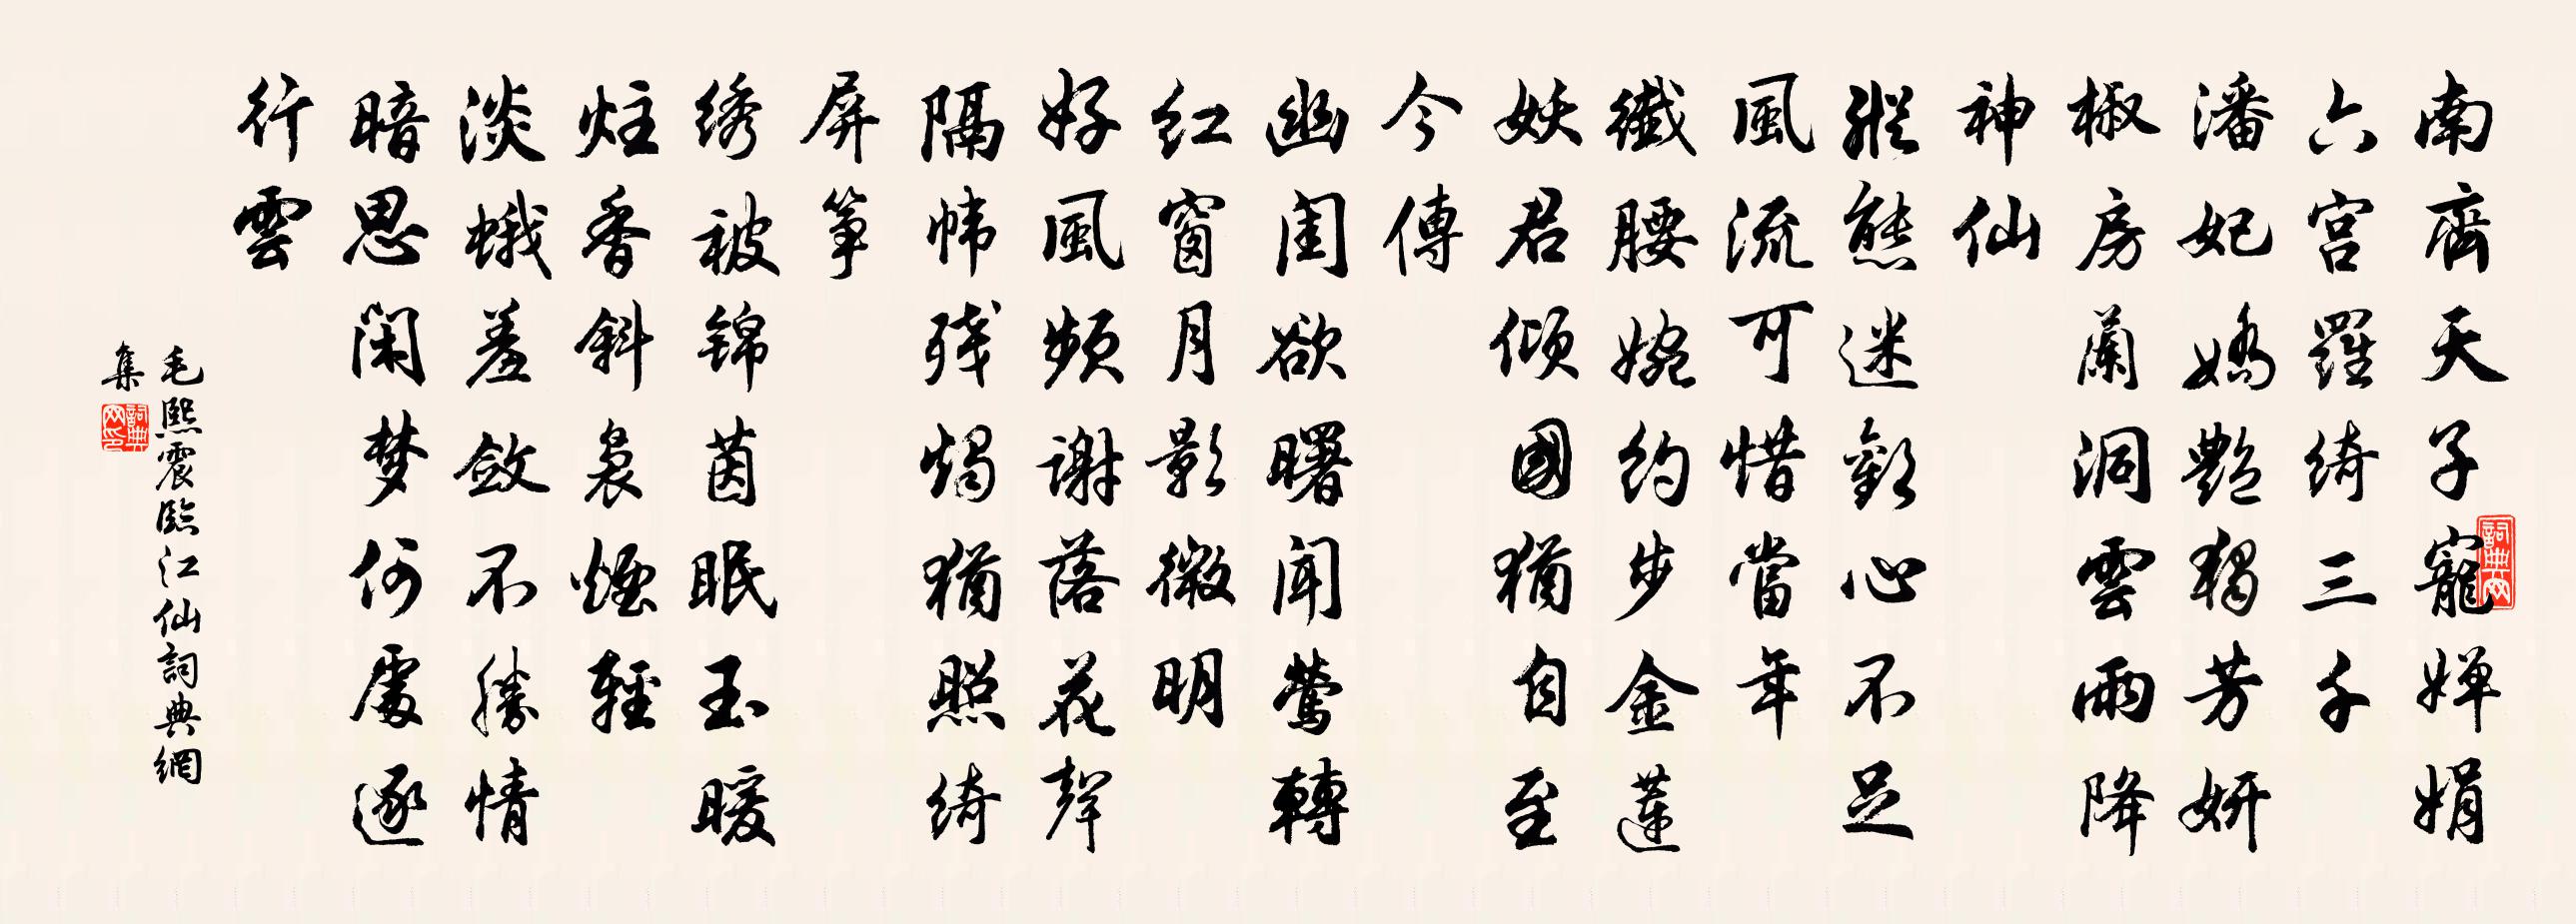 南齊天子寵婵娟
六宮羅绮三千
潘妃嬌艷獨芳妍
椒房蘭洞雲雨降
神仙
縱態迷歡心不足
風流可惜當年
纖腰婉约步金蓮
妖君傾國猶自至
今傳
幽闺欲曙聞鶯轉
红窗月影微明
好風頻谢落花聲
隔帏残燭猶照绮
屏筝
绣被锦茵眠玉暖
炷香斜裊煙輕
淡蛾羞斂不勝情
暗思闲梦何處逐
行雲
毛熙震臨江仙詞典網
集
詞典网
詞典网印